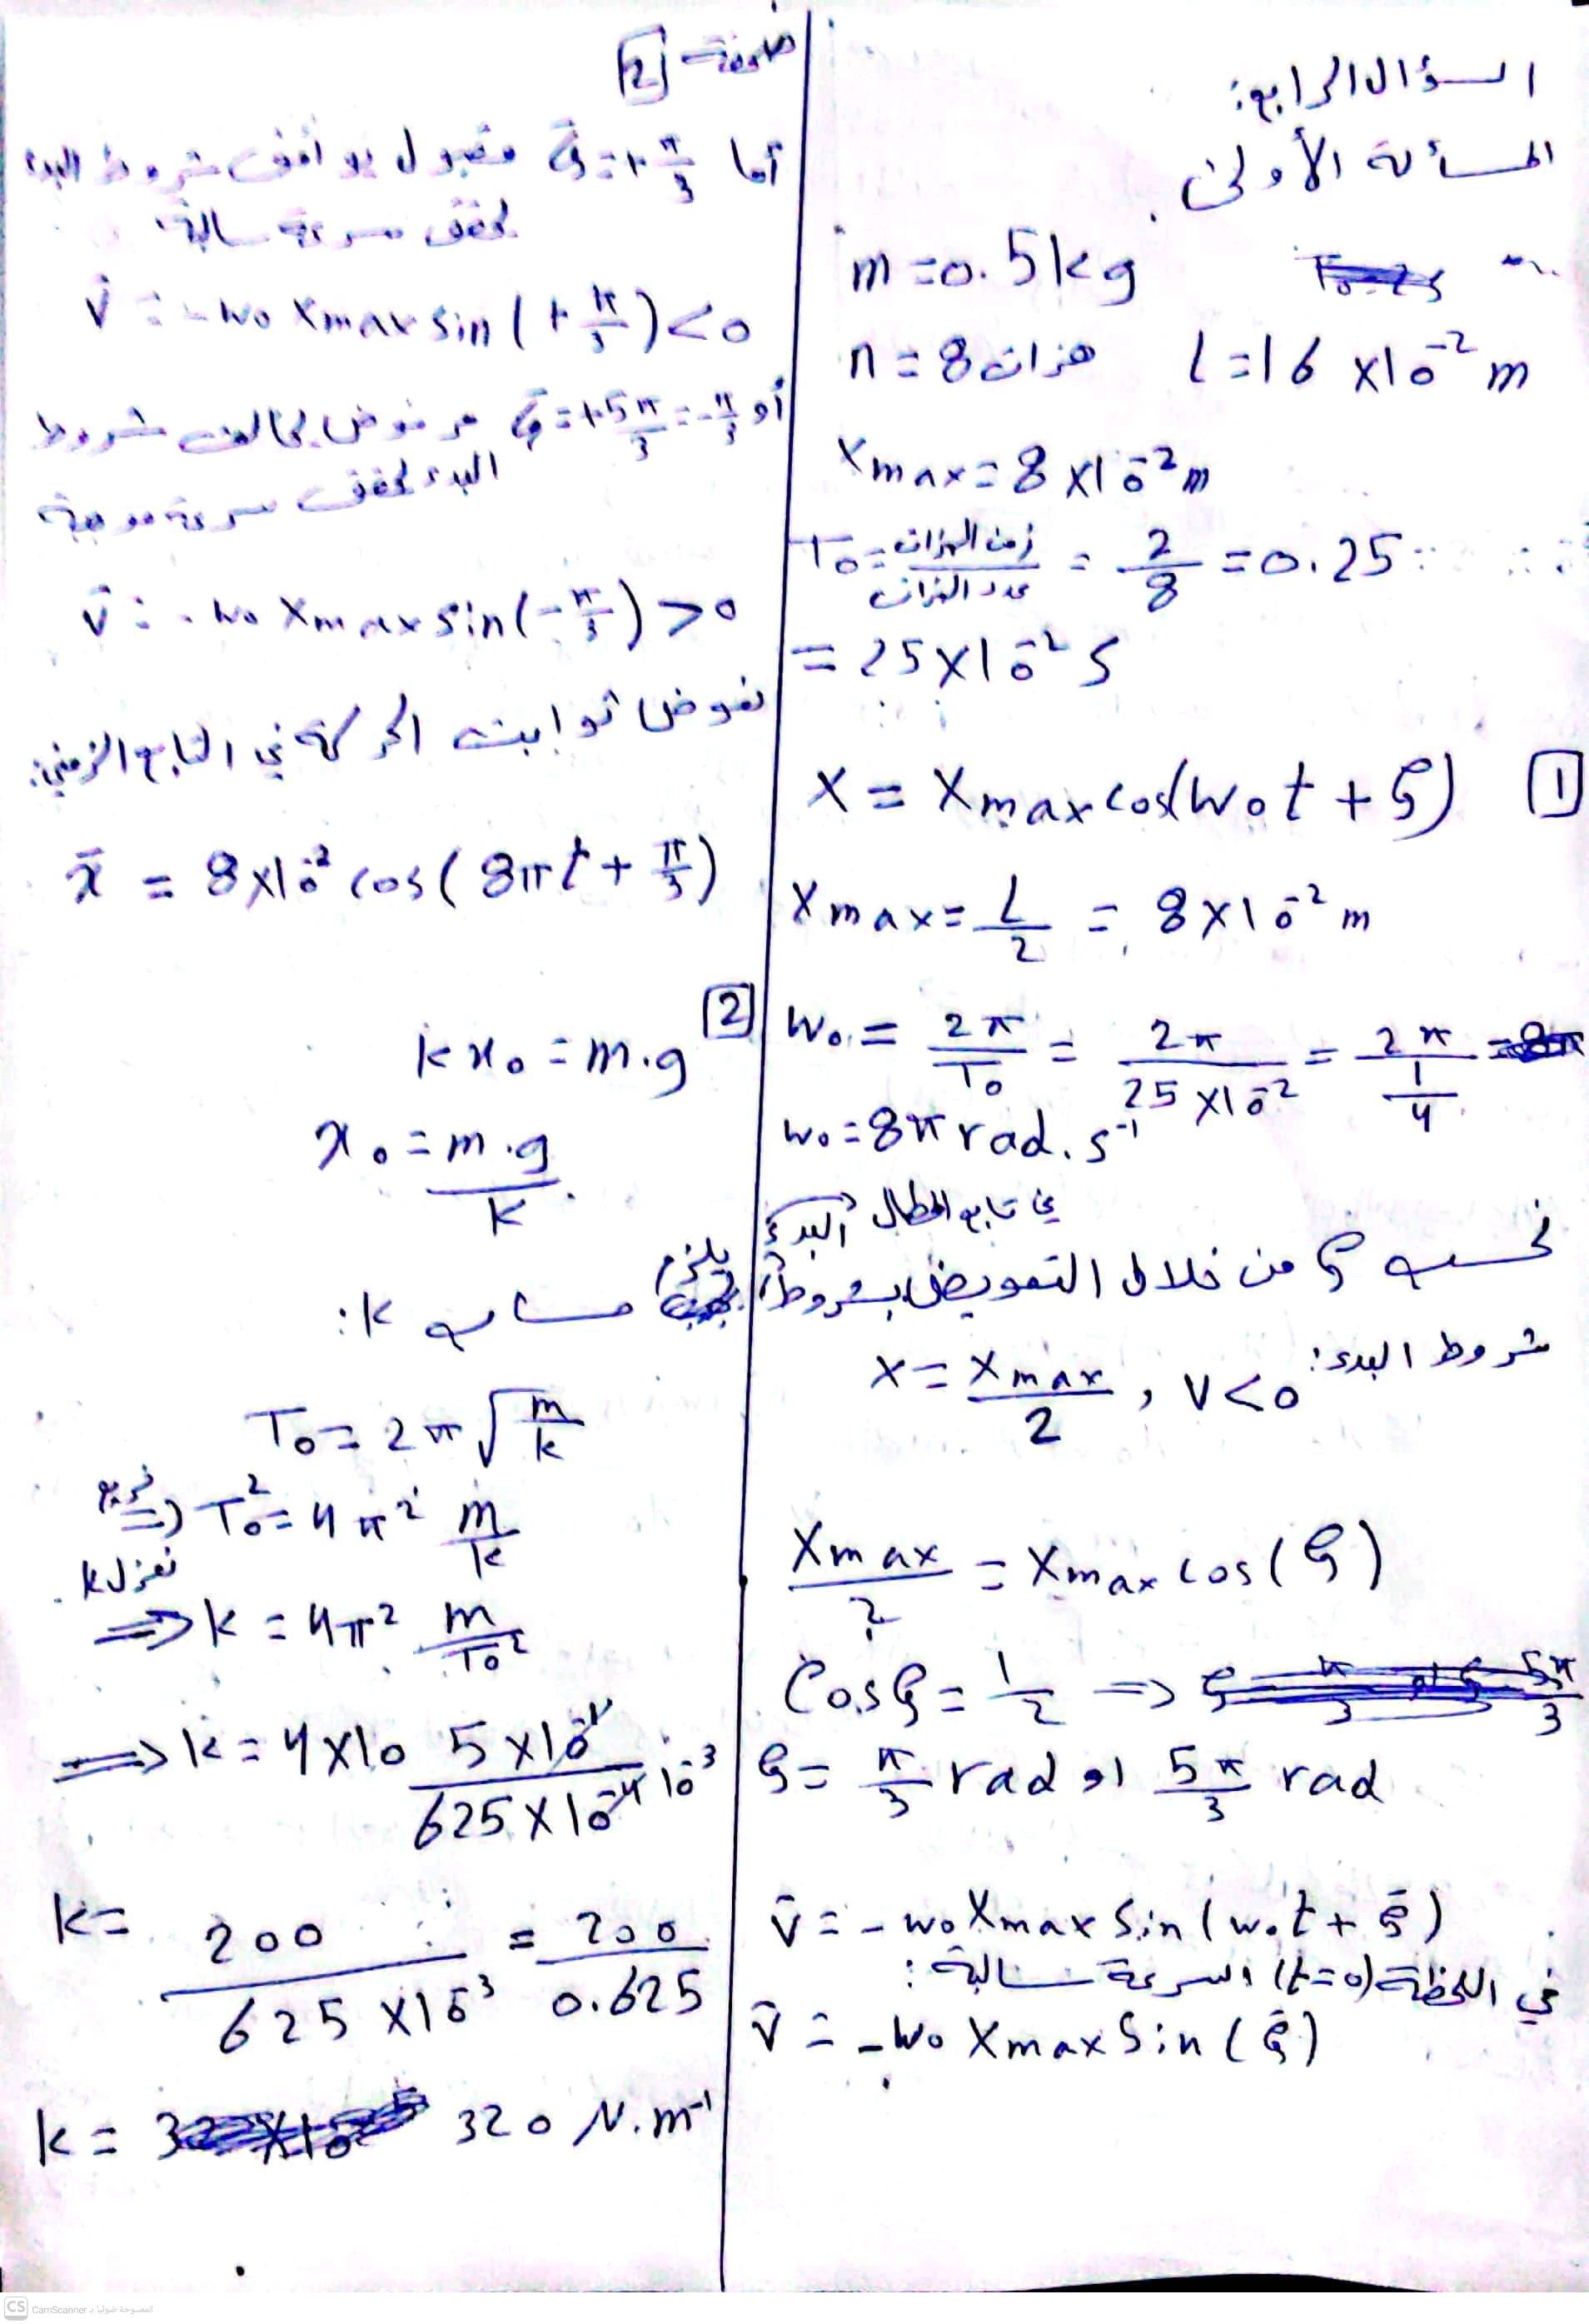 السؤال الرابع:
المسألة الأولى
m = 0.5 kg
n = 8 هزات l = 16 × 10⁻² m
Xmax = 8 × 10⁻² m
T₀ = زمن الهزات / عدد الهزات = 2/8 = 0.25
= 25 × 10⁻² s
1 X = Xmax cos(ω₀t + φ)
Xmax = L/2 = 8 × 10⁻² m
ω₀ = 2π/T₀ = 2π/(25 × 10⁻²) = 2π/(1/4)
ω₀ = 8π rad.s⁻¹
نحسب φ من خلال التعويض بشروط البدء في تابع المطال
شروط البدء: X = Xmax/2 , V < 0
Xmax/2 = Xmax cos(φ)
Cos φ = 1/2 ⇒
φ = π/3 rad او 5π/3 rad
v̄ = -ω₀ Xmax Sin(ω₀t + φ̄)
في اللحظة (t=0) السرعة سالبة:
v̄ = -ω₀ Xmax Sin(φ̄)
2
أما φ̄ = +π/3 مقبول يوافق شروط البدء
يحقق سرعة سالبة
v̄ = -ω₀ Xmax sin(+π/3) < 0
أو φ̄ = +5π/3 = -π/3 مرفوض يخالف شروط
البدء يحقق سرعة موجبة
v̄ = -ω₀ Xmax sin(-π/3) > 0
نعوض ثوابت الحركة في التابع الزمني:
x̄ = 8 × 10⁻² cos(8πt + π/3)
2 k x₀ = m.g
x₀ = m.g/k
يلزم حساب k:
T₀ = 2π √(m/k)
نربع ⇒ T₀² = 4π² m/k
نعزل k
⇒ k = 4π² m/T₀²
⇒ k = 4 × 10 5 × 10⁻¹/(625 × 10⁻⁴) 10⁻³
k = 200/(625 × 10⁻³) = 200/0.625
k = 320 N.m⁻¹
CS CamScanner الممسوحة ضوئيا بـ